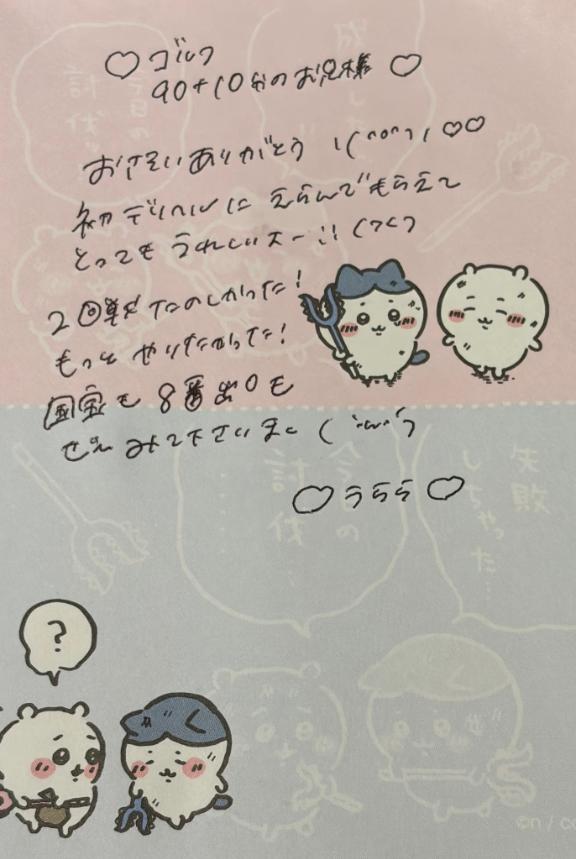 ♡ ゴルフ
90+10分のお兄様 ♡
おさそいありがとう \(^o^)/ ♡♡
初デリヘルに えらんでもらえて
とっても うれしいスー!!
2回戦 たのしかった!
もっと やりたかった!
国宝も 8番出口も
ぜひ みて下さいまし
♡ うらら ♡
今日の
討伐
失敗
しちゃった…
今日の
討伐
…
?